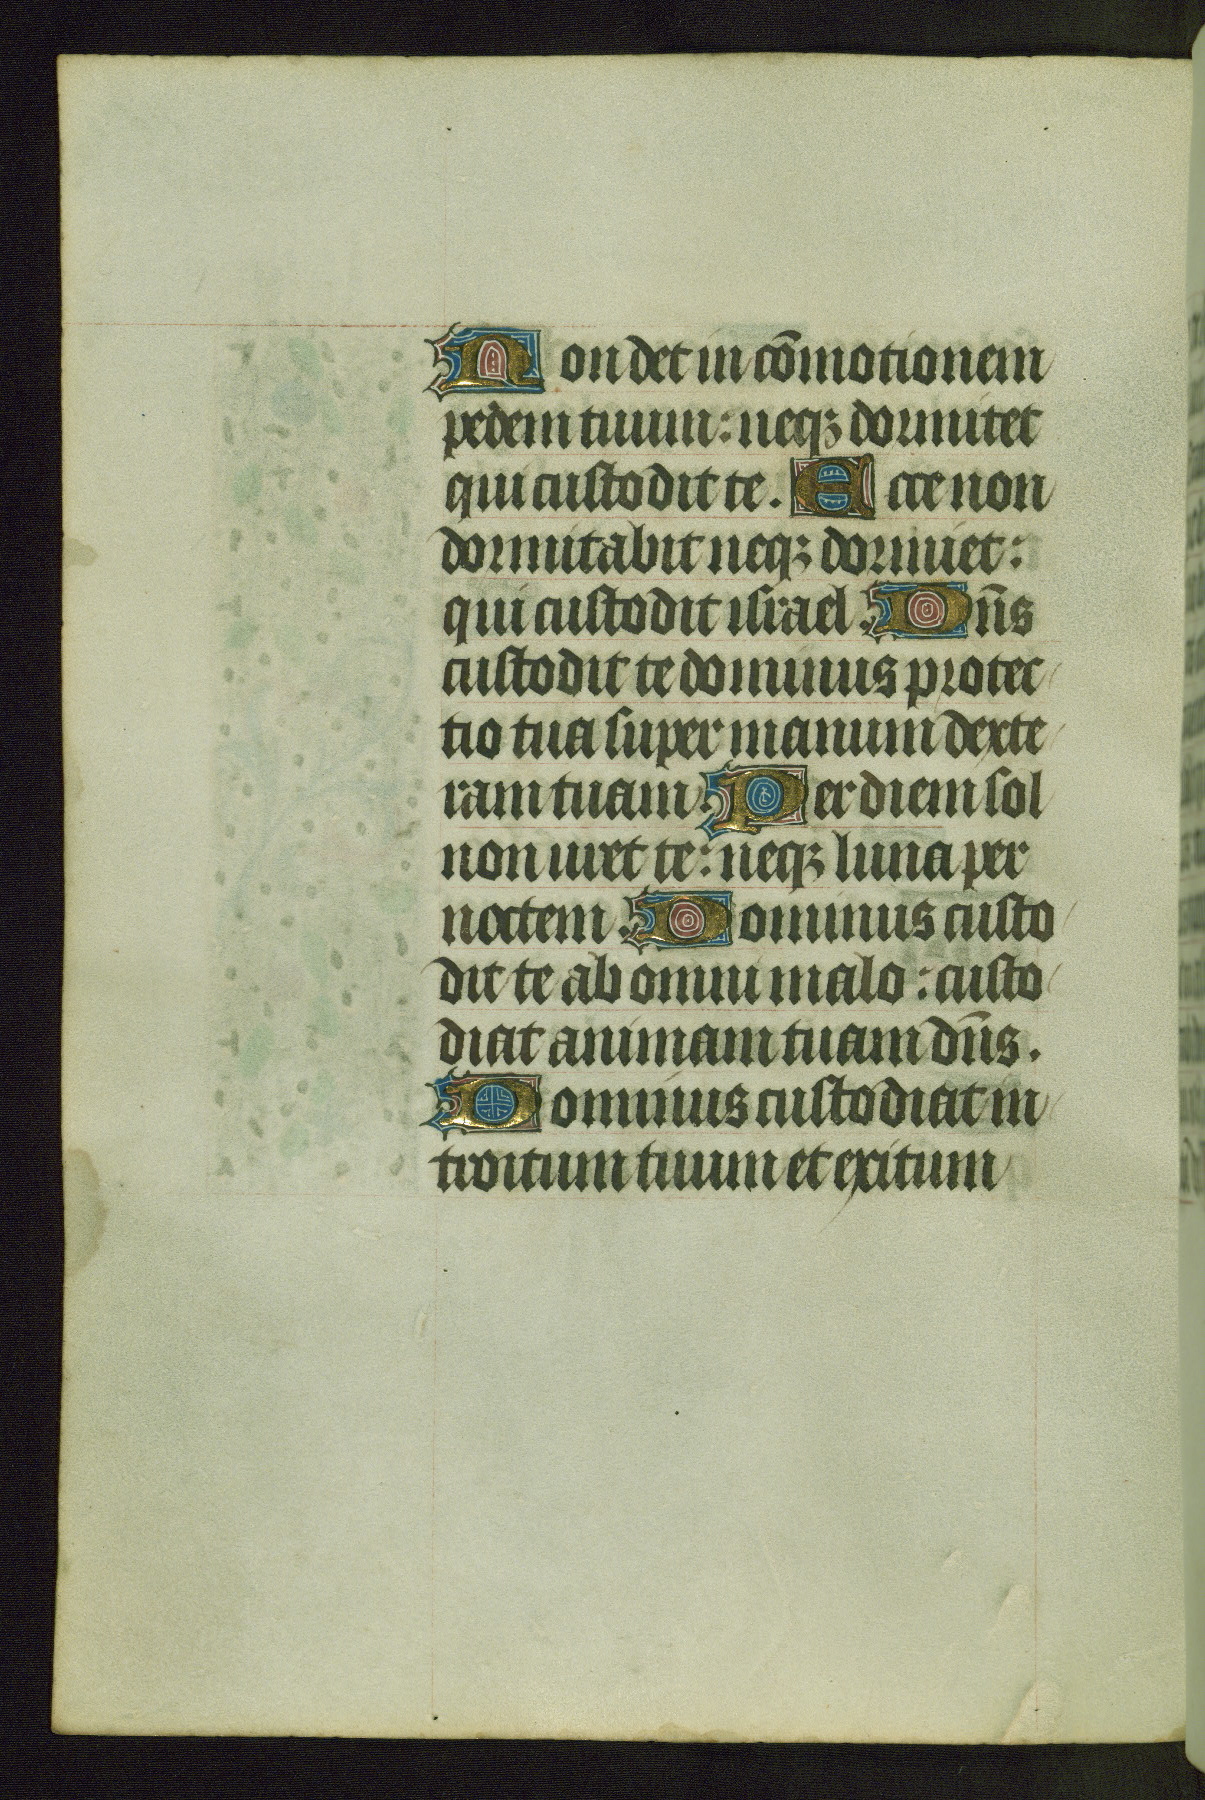 Non det in cōmotionem
pedem tuum: neqꝫ dormitet
qui custodit te. Ecce non
dormitabit neqꝫ dormiet:
qui custodit israel. Dn̄s
custodit te dominus protec
tio tua super manum dexte
ram tuam. Per diem sol
non uret te: neqꝫ luna per
noctem. Dominus custo
dit te ab omni malo: custo
diat animam tuam dn̄s.
Dominus custodiat in
troitum tuum et exitum